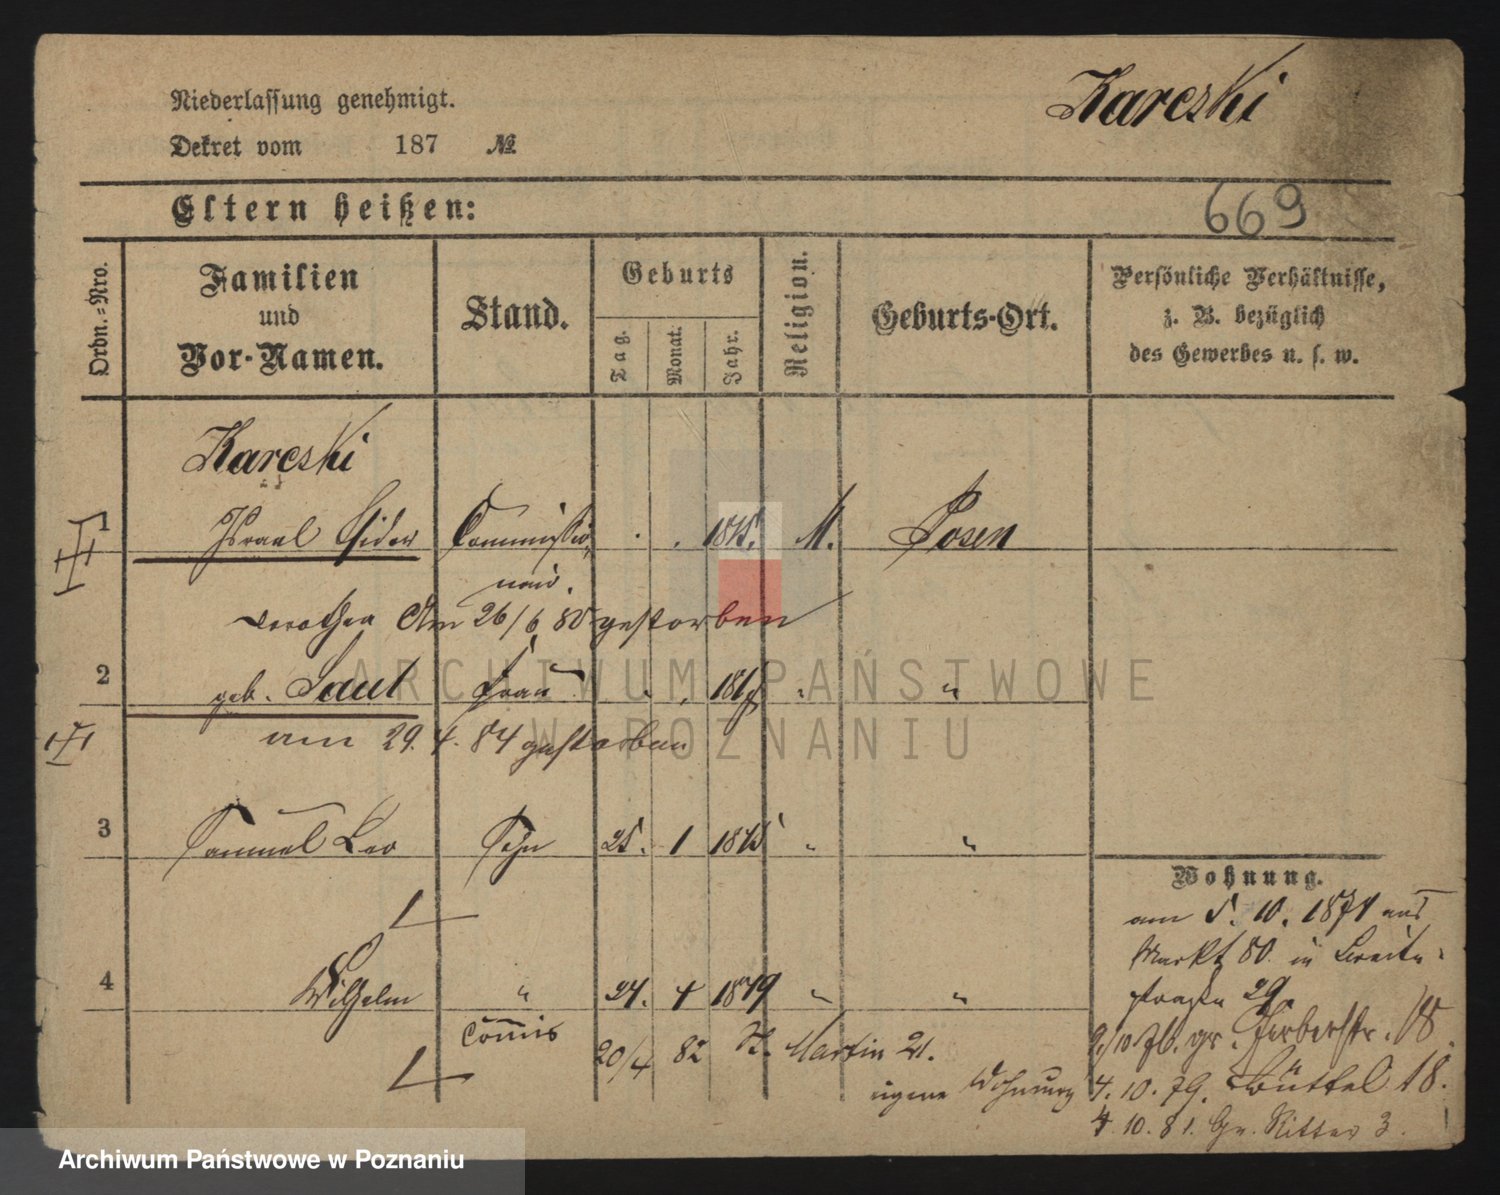 Niederlassung genehmigt.
Kareski
Dekret vom 187 №
Eltern heißen:
669
Ordn.-Nro.
Familien
und
Vor-Namen.
Stand.
Geburts
Tag.
Monat.
Jahr.
Religion.
Geburts-Ort.
Persönliche Verhältnisse,
z. B. bezüglich
des Gewerbes u. s. w.
Kareski
1 Israel Isidor Commissio- M. Posen
när.
Dorothea Am 26/6 80 gestorben
2 geb. Saul Frau " "
am 29. 4. 84 gestorben
3 Samuel Leo Sohn 25. 1 1845 " "
Wohnung.
am 5. 10. 1871 aus
Markt 80. in Breite-
straße 29.
4 Wilhelm " 24. 4 1849 " "
Commis
20/4 82 St. Martin 21.
eigene Wohnung
9./10 76. gr. Gerberstr. 18.
4. 10. 79. Büttel 18.
4. 10. 81. Gr. Ritter 3.
ARCHIWUM PAŃSTWOWE
W POZNANIU
Archiwum Państwowe w Poznaniu